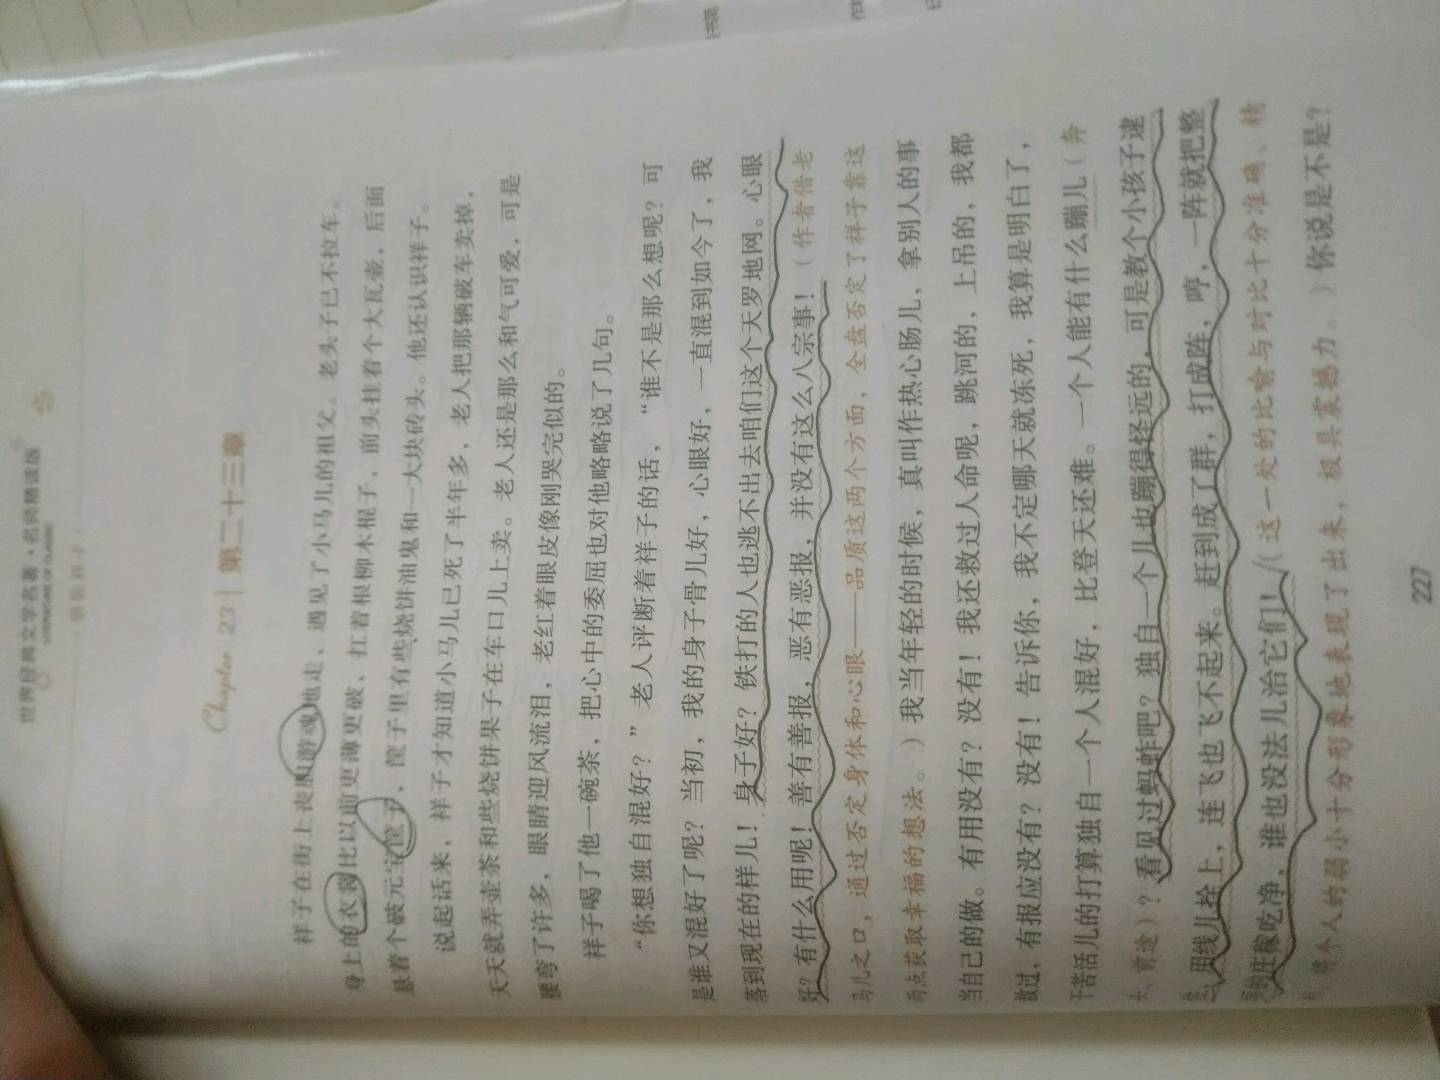 世界经典文学名著·名师精读版
LITERATURE OF CLASSIC
骆驼祥子
Chapter 23 | 第二十三章
祥子在街上丧胆游魂地走，遇见了小马儿的祖父。老头子已不拉车。
身上的衣裳比以前更薄更破，扛着根柳木棍子，前头挂着个大瓦壶，后面
悬着个破元宝筐子，筐子里有些烧饼油鬼和一大块砖头。他还认识祥子。
说起话来，祥子才知道小马儿已死了半年多，老人把那辆破车卖掉，
天天就弄壶茶和些烧饼果子在车口儿上卖。老人还是那么和气可爱，可是
腰弯了许多，眼睛迎风流泪，老红着眼皮像刚哭完似的。
祥子喝了他一碗茶，把心中的委屈也对他略略说了几句。
“你想独自混好？”老人评断着祥子的话，“谁不是那么想呢？可
是谁又混好了呢？当初，我的身子骨儿好，心眼好，一直混到如今了，我
落到现在的样儿！身子好？铁打的人也逃不出去咱们这个天罗地网。心眼
好？有什么用呢！善有善报，恶有恶报，并没有这么八宗事！（作者借老
马儿之口，通过否定身体和心眼——品质这两个方面，全盘否定了祥子靠这
两点获取幸福的想法。）我当年轻的时候，真叫作热心肠儿，拿别人的事
当自己的做。有用没有？没有！我还救过人命呢，跳河的，上吊的，我都
救过，有报应没有？没有！告诉你，我不定哪天就冻死，我算是明白了，
干苦活儿的打算独自一个人混好，比登天还难。一个人能有什么蹦儿（奔
头、前途）？看见过蚂蚱吧？独自一个儿也蹦得怪远的，可是教个小孩子逮
住，用线儿拴上，连飞也飞不起来。赶到成了群，打成阵，哼，一阵就把整
顷的庄稼吃净，谁也没法儿治它们！（这一处的比喻与对比十分准确、精
将个人的弱小十分形象地表现了出来，极具震撼力。）你说是不是？
227